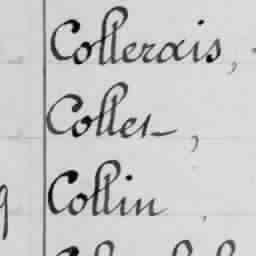 Collerais,
Collet,
Collin